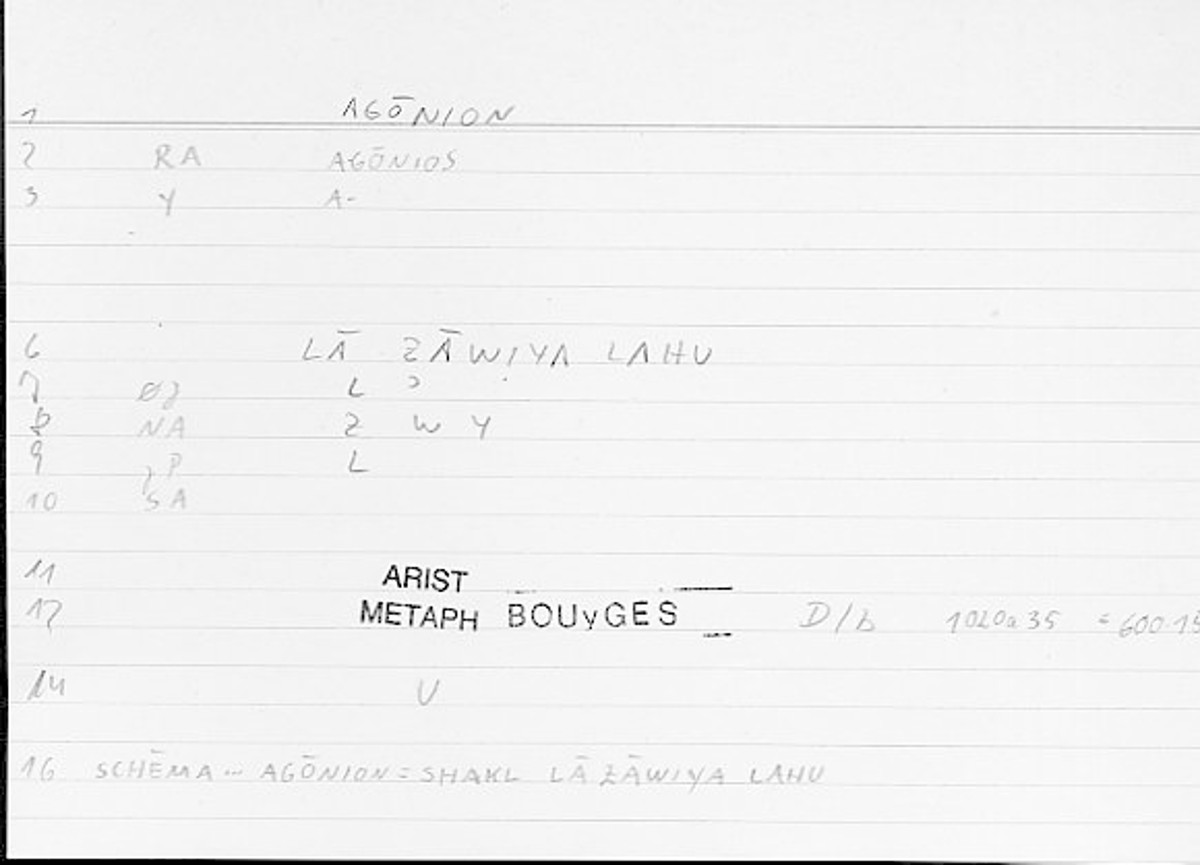 1 AGŌNION
2 RA AGŌNIOS
3 Y A-
6 LĀ ZĀWIYA LAHU
7 L ʾ
8 NA Z W Y
9 P L
10 SA
11 ARIST
12 METAPH BOUyGES D/b 1020a35 = 600.15
14 U
16 SCHĒMA -- AGŌNION = SHAKL LĀ ZĀWIYA LAHU